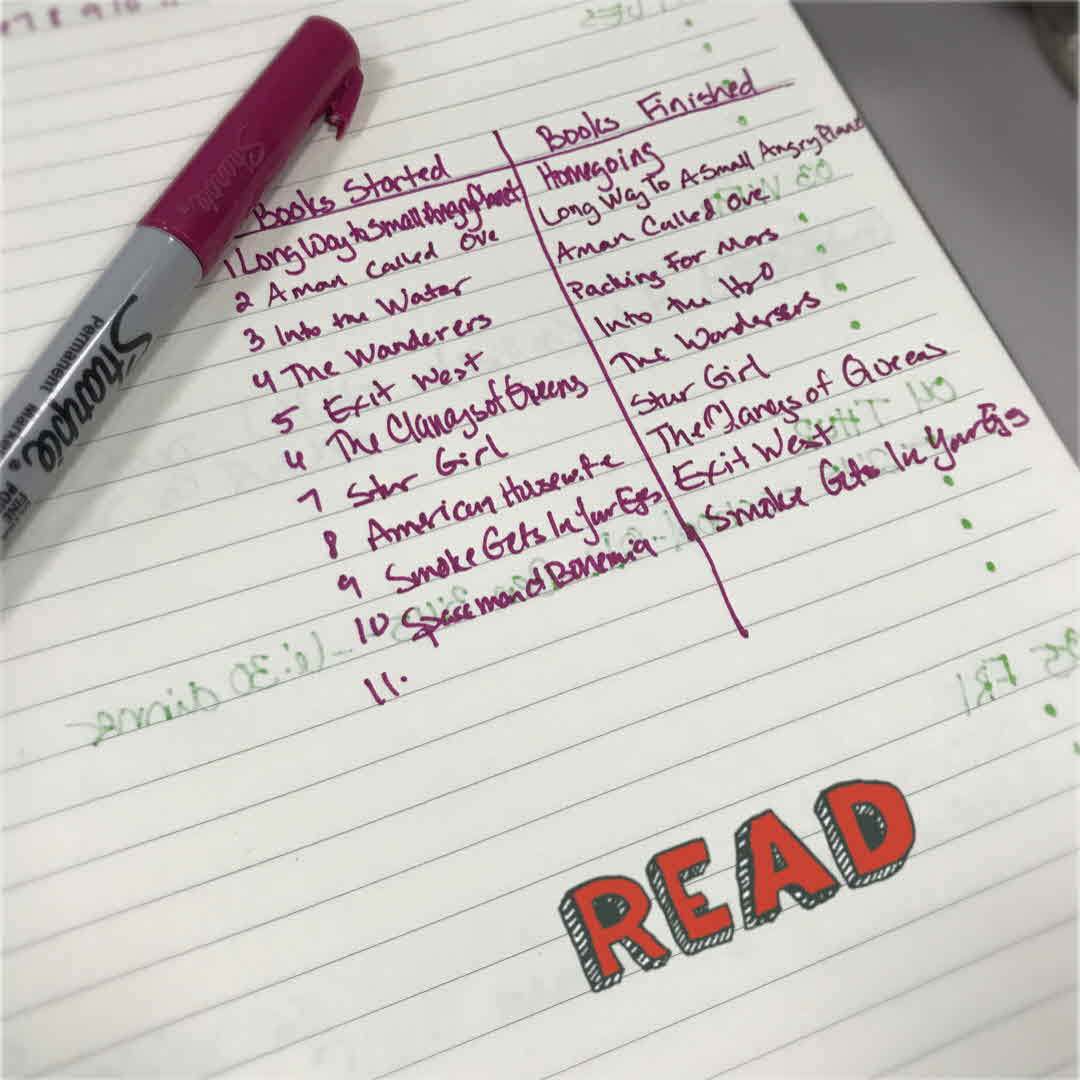 7 8 9 10 11
Sharpie
Sharpie.
Permanent
Books Started
1 Long Way to Small Angry Planet
2 A man Called Ove
3 Into the Water
4 The Wanderers
5 Exit West
6 The Clancys of Queens
7 Star Girl
8 American Housewife
9 Smoke Gets In Your Eyes
10 Spaceman of Bohemia
11.
Books Finished
Homegoing
Long Way To A Small Angry Planet
A man Called Ove
Packing For Mars
Into the H2O
The Wanderers
Star Girl
The Clancys of Queens
Exit West
Smoke Gets In Your Eyes
6:30 dinner
25 FRI
READ